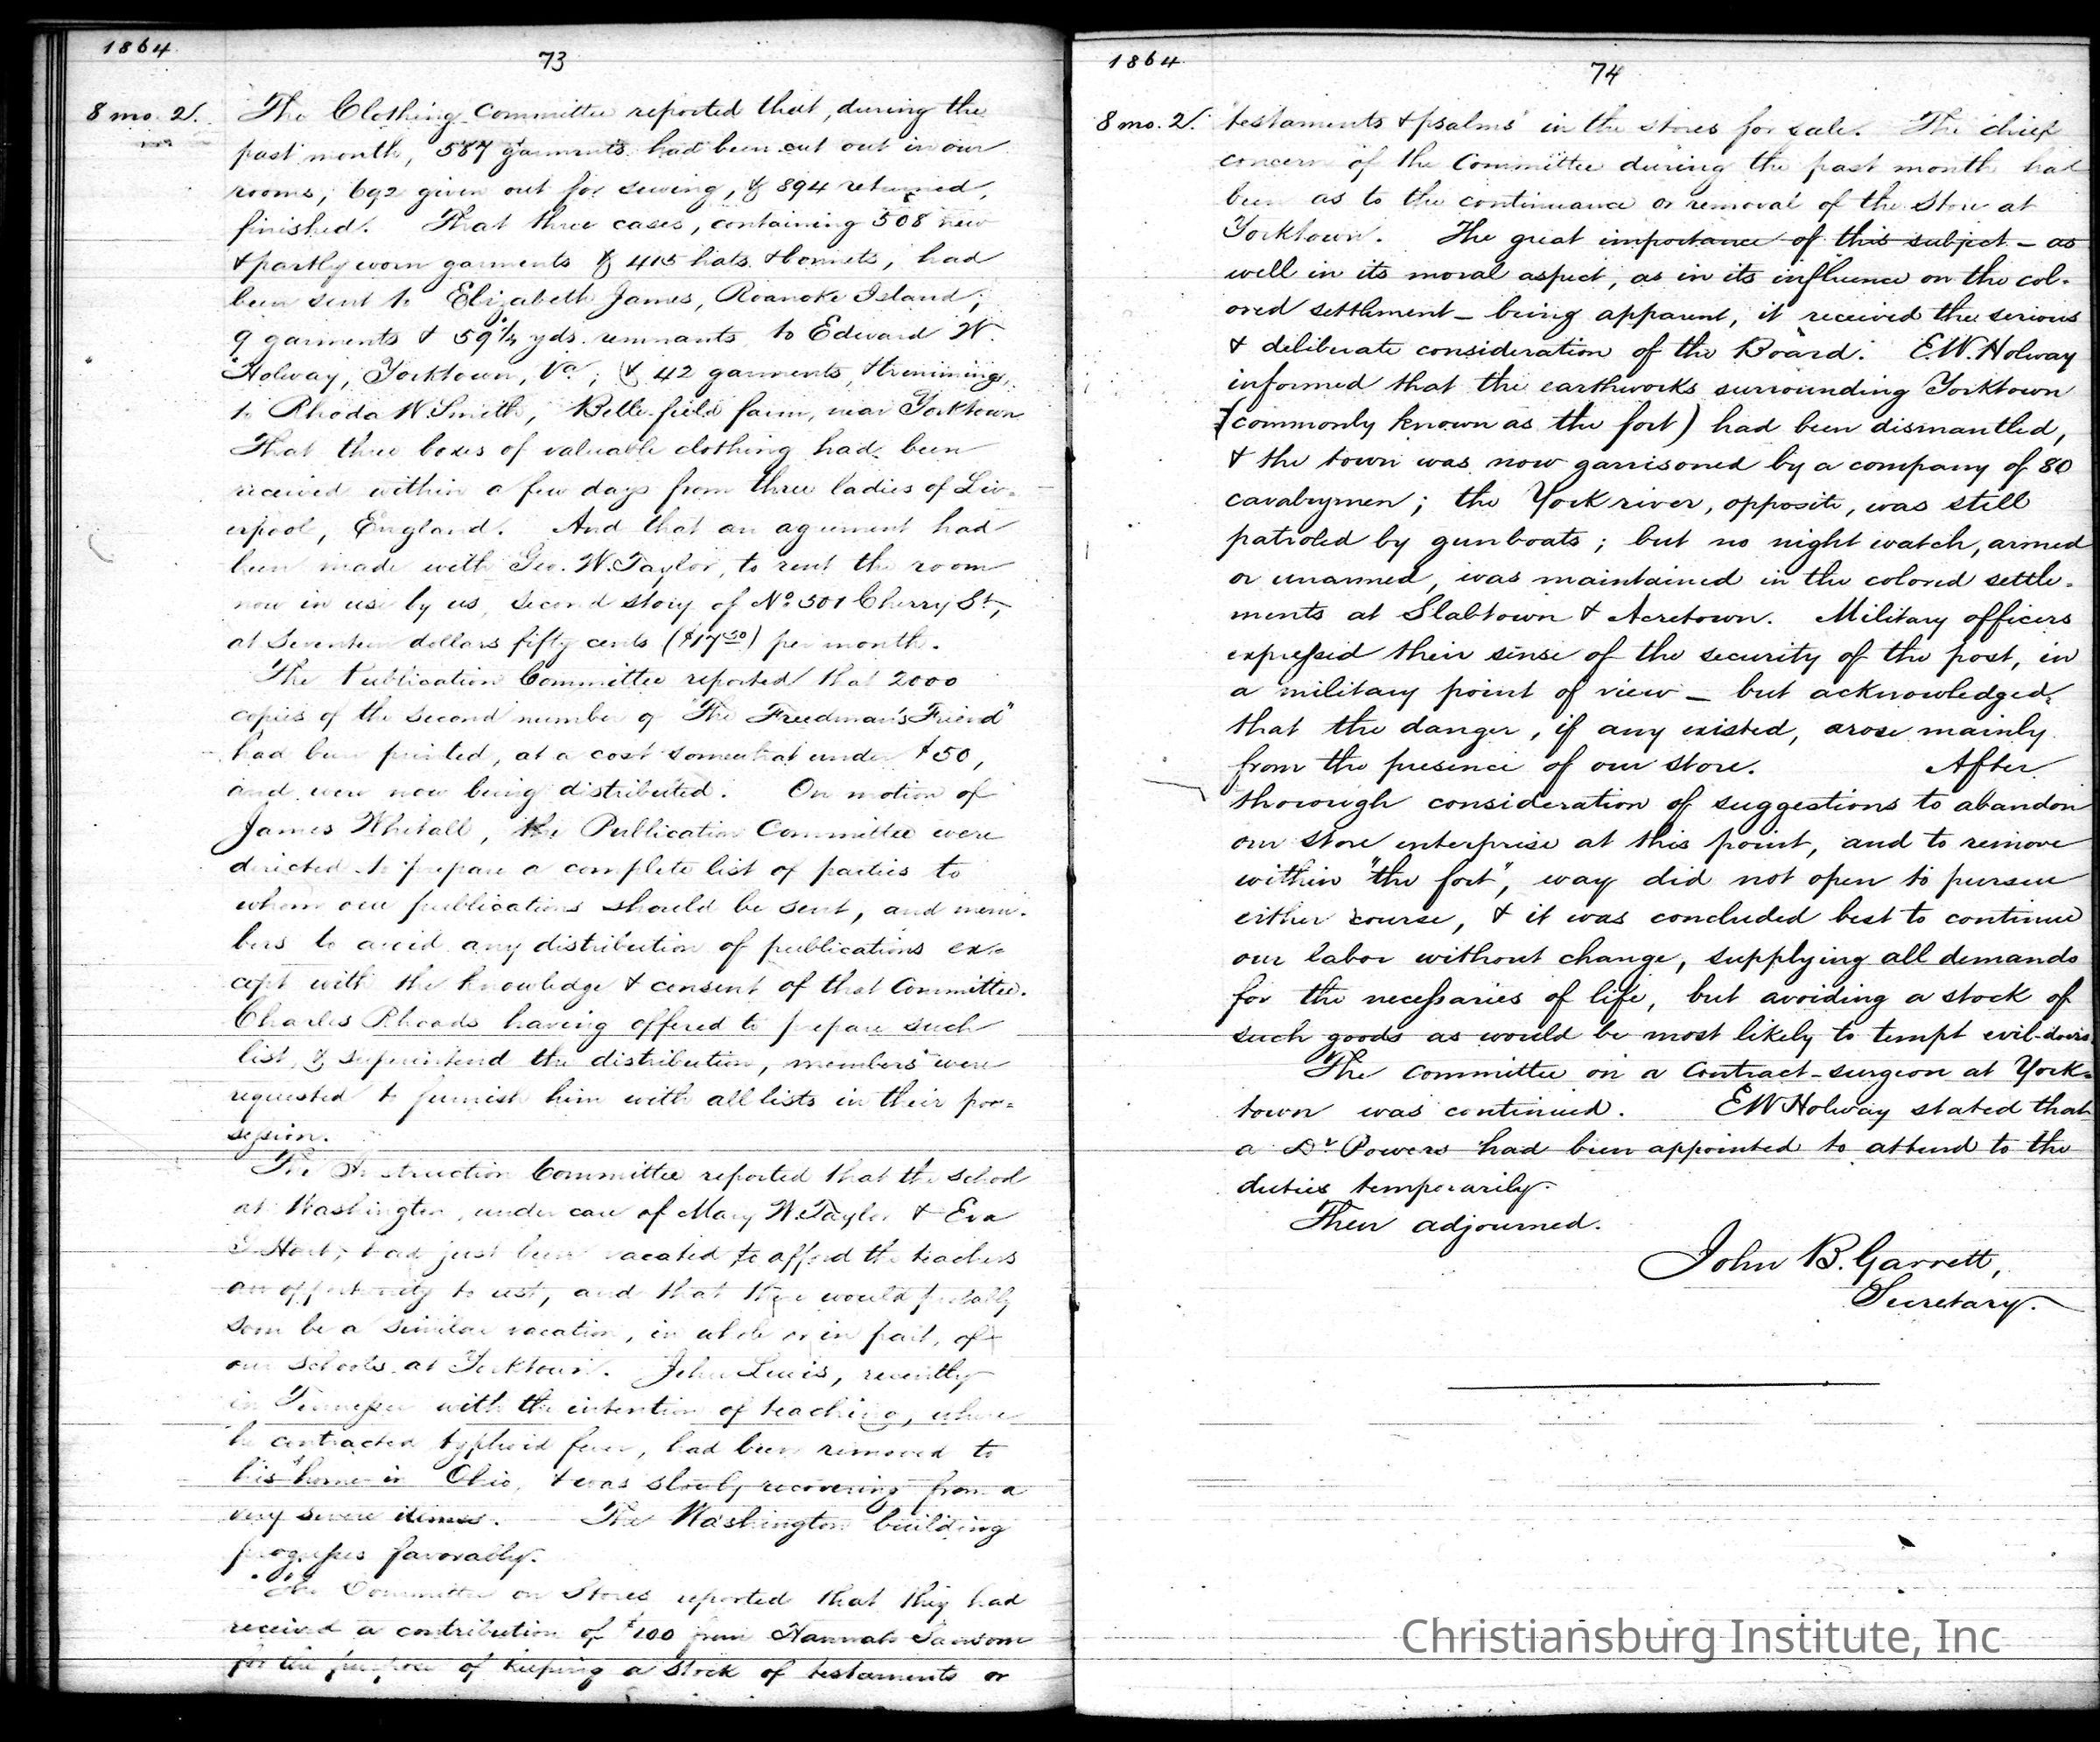 1864
73
8 mo. 2. The Clothing Committee reported that, during the
past month, 587 garments had been cut out in our
rooms, 692 given out for sewing, & 894 returned,
finished. That three cases, containing 508 new
& partly worn garments & 415 hats & bonnets, had
been sent to Elizabeth James, Roanoke Island;
9 garments & 59¼ yds. remnants, to Edward W.
Holway, Yorktown, Va.; & 42 garments, & trimmings,
to Rhoda W. Smith, Belle-field farm, near Yorktown
That three boxes of valuable clothing had been
received within a few days from three ladies of Liv-
erpool, England. And that an agreement had
been made with Geo. W. Taylor, to rent the room
now in use by us, second story of No. 501 Cherry St.,
at Seventeen dollars fifty cents ($17.50) per month.
The Publication Committee reported that 2000
copies of the second number of "The Freedman's Friend"
had been printed, at a cost somewhat under $50,
and were now being distributed. On motion of
James Whitall, the Publication Committee were
directed to prepare a complete list of parties to
whom our publications should be sent, and mem-
bers to avoid any distribution of publications ex-
cept with the knowledge & consent of that Committee.
Charles Rhoads having offered to prepare such
list, & superintend the distribution, members were
requested to furnish him with all lists in their pos-
session.
The Instruction Committee reported that the school
at Washington, under care of Mary W. Taylor & Eva
Hart, had just been vacated to afford the teachers
an opportunity to rest, and that there would probably
soon be a similar vacation, in whole or in part, of
our schools at Yorktown. John Lewis, recently
in Tennessee with the intention of teaching, where
he contracted typhoid fever, had been removed to
his home in Ohio, & was slowly recovering from a
very severe illness. The Washington building
progresses favorably.
The Committee on Stores reported that they had
received a contribution of $100 from Hannah Sansom
for the purpose of keeping a stock of testaments or
1864
74
8 mo. 2. "testaments & psalms" in the stores for sale. The chief
concern of the Committee during the past month had
been as to the continuance or removal of the Store at
Yorktown. The great importance of this subject - as
well in its moral aspect, as in its influence on the col-
ored settlement - being apparent, it received the serious
& deliberate consideration of the Board. E.W. Holway
informed that the earthworks surrounding Yorktown
(commonly known as the fort) had been dismantled,
& the town was now garrisoned by a company of 80
cavalrymen; the York river, opposite, was still
patroled by gunboats; but no night watch, armed
or unarmed, was maintained in the colored settle-
ments at Slabtown & Acretown. Military officers
expressed their sense of the security of the post, in
a military point of view - but acknowledged,
that the danger, if any existed, arose mainly
from the presence of our store. After
thorough consideration of suggestions to abandon
our store enterprise at this point, and to remove
within "the fort", way did not open to pursue
either course, & it was concluded best to continue
our labor without change, supplying all demands
for the necessaries of life, but avoiding a stock of
such goods as would be most likely to tempt evil-doers.
The Committee on a Contract-surgeon at York-
town was continued. E W Holway stated that
a Dr. Powers had been appointed to attend to the
duties temporarily.
Then adjourned.
John B. Garrett,
Secretary.
Christiansburg Institute, Inc